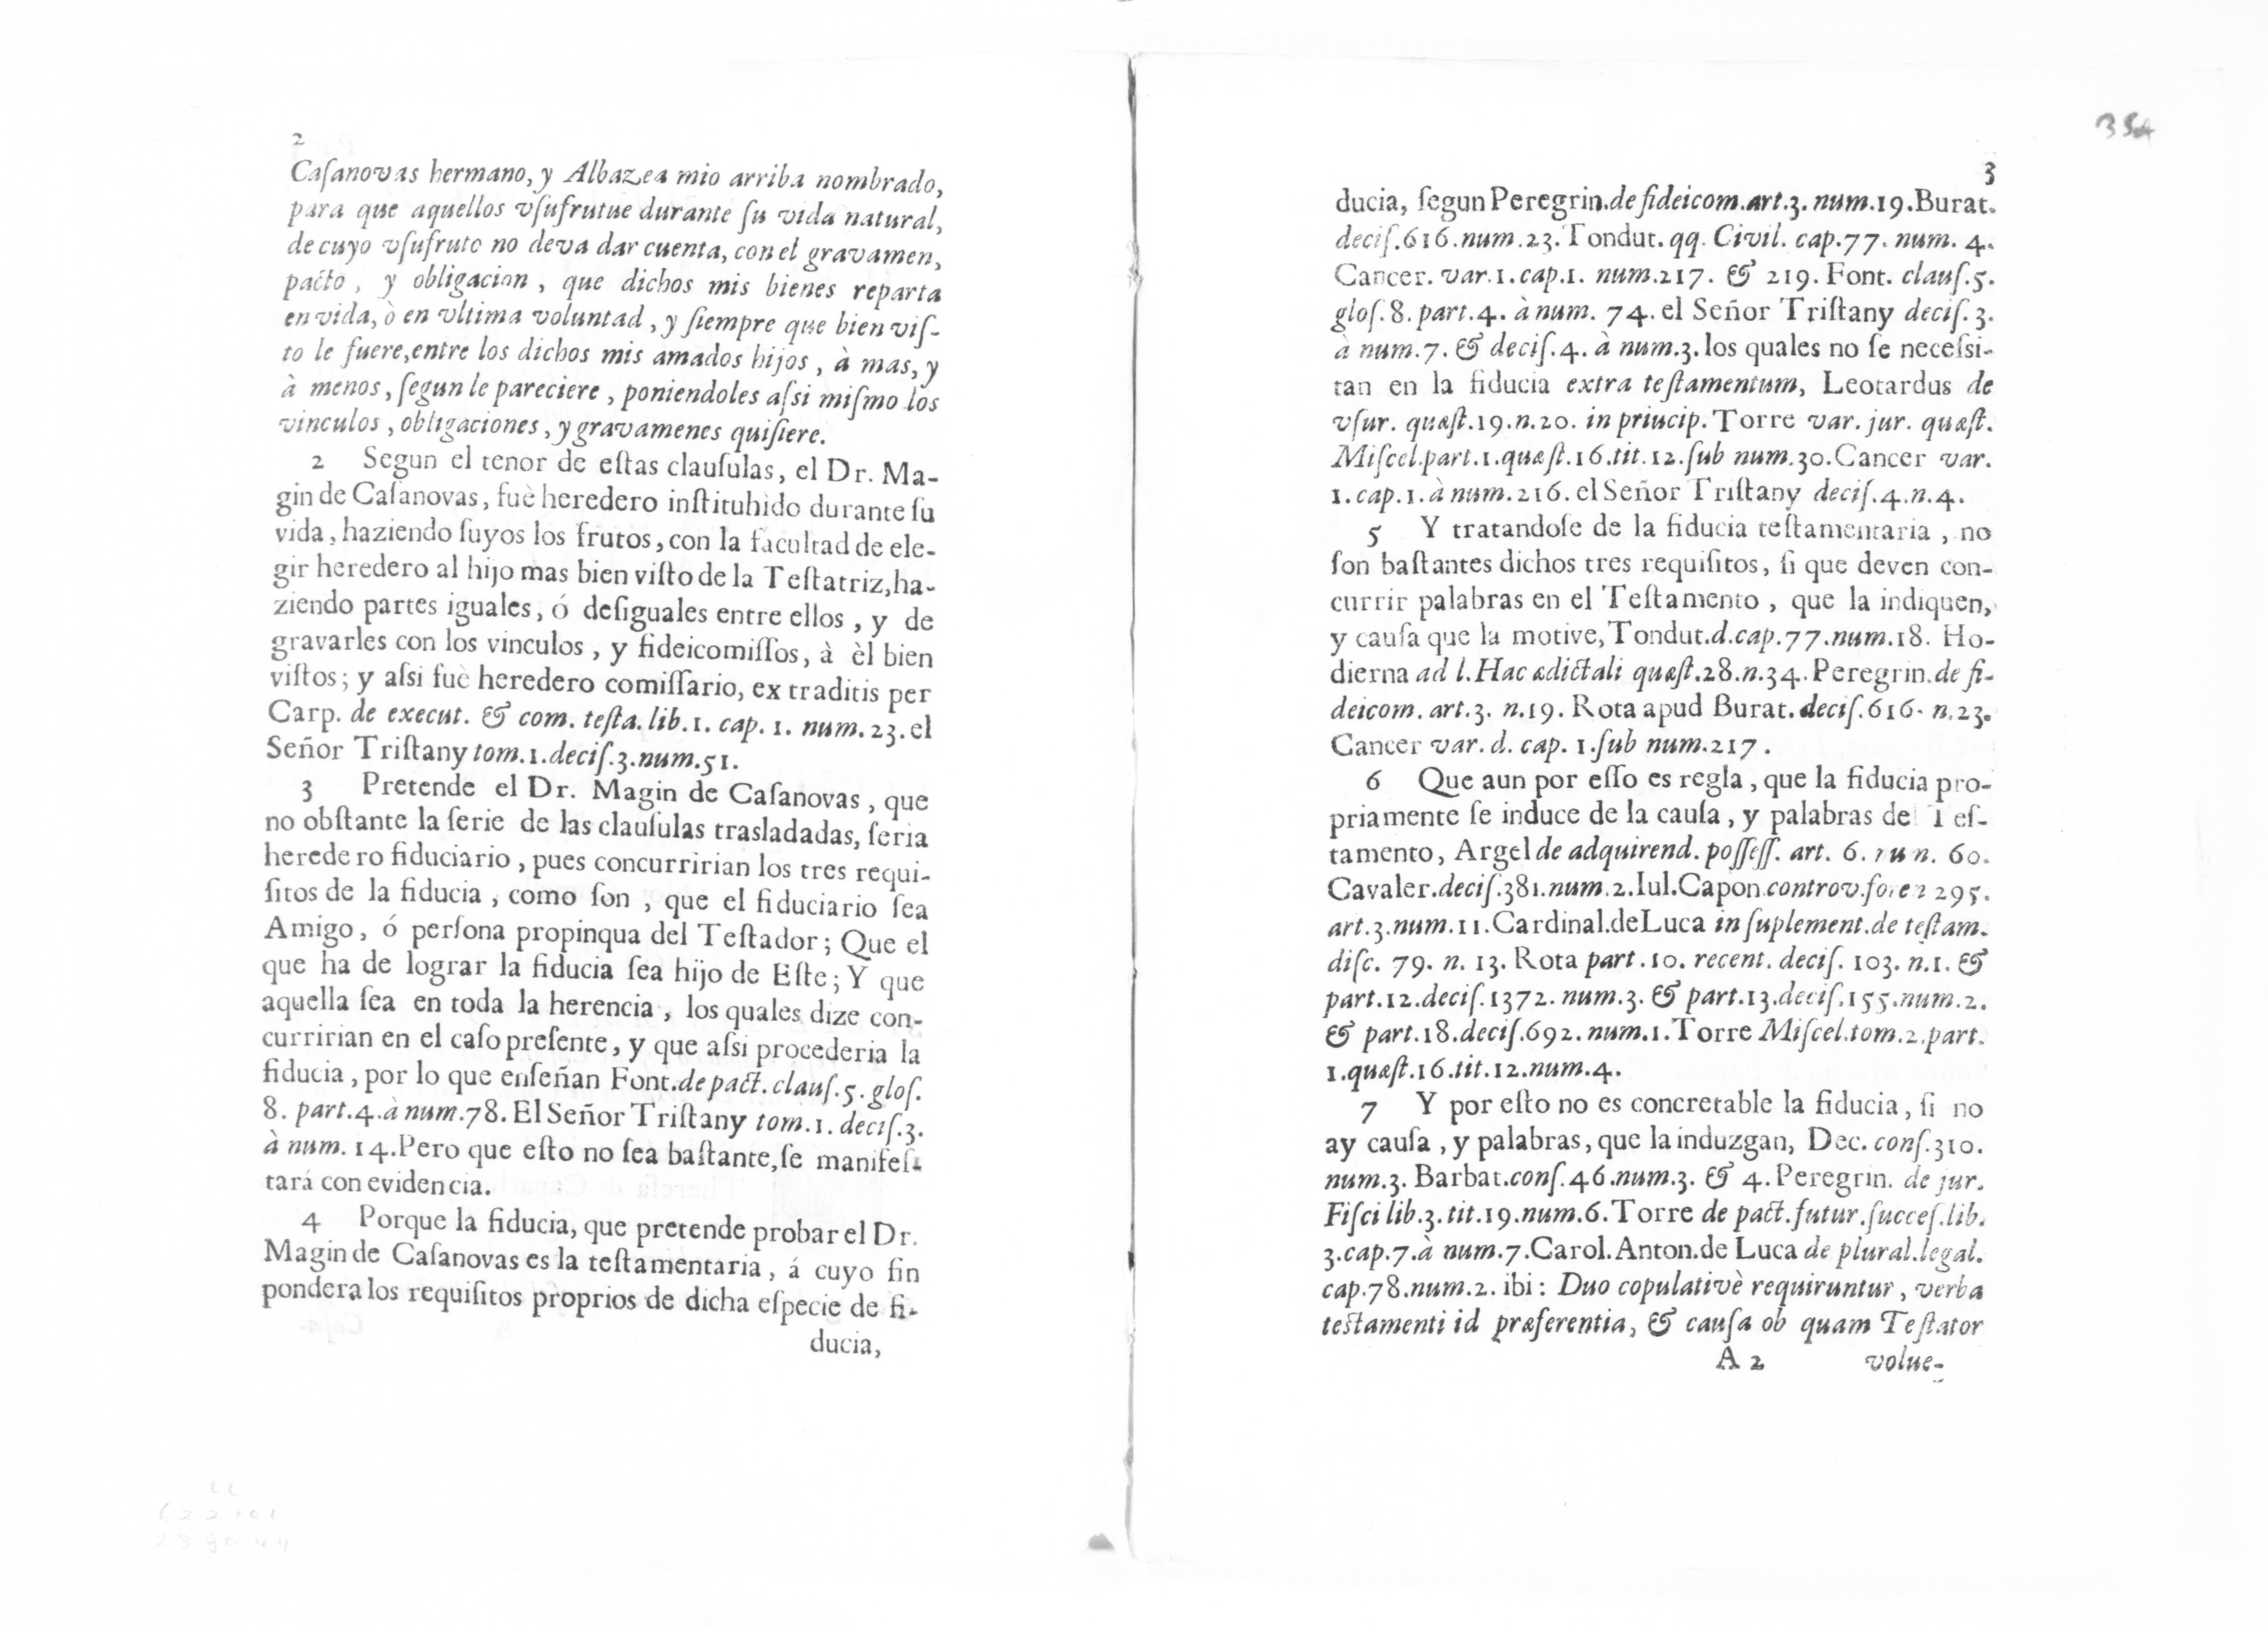 2
Caſanovas hermano, y Albazea mio arriba nombrado,
para que aquellos vſufrutue durante ſu vida natural,
de cuyo vſufruto no deva dar cuenta, con el gravamen,
pacto, y obligacion, que dichos mis bienes reparta
en vida, ò en vltima voluntad, y ſiempre que bien viſ-
to le fuere, entre los dichos mis amados hijos, à mas, y
à menos, ſegun le pareciere, poniendoles aſsi miſmo los
vinculos, obligaciones, y gravamenes quiſiere.
2 Segun el tenor de eſtas clauſulas, el Dr. Ma-
gin de Caſanovas, fuè heredero inſtituhìdo durante ſu
vida, haziendo ſuyos los frutos, con la facultad de ele-
gir heredero al hijo mas bien viſto de la Teſtatriz, ha-
ziendo partes iguales, ó deſiguales entre ellos, y de
gravarles con los vinculos, y fideicomiſſos, à èl bien
viſtos; y aſsi fuè heredero comiſſario, ex traditis per
Carp. de execut. & com. teſta. lib. 1. cap. 1. num. 23. el
Señor Triſtany tom. 1. deciſ. 3. num. 51.
3 Pretende el Dr. Magin de Caſanovas, que
no obſtante la ſerie de las clauſulas trasladadas, ſeria
heredero fiduciario, pues concurririan los tres requi-
ſitos de la fiducia, como ſon, que el fiduciario ſea
Amigo, ó perſona propinqua del Teſtador; Que el
que ha de lograr la fiducia ſea hijo de Eſte; Y que
aquella ſea en toda la herencia, los quales dize con-
curririan en el caſo preſente, y que aſsi procederia la
fiducia, por lo que enſeñan Font. de pact. clauſ. 5. gloſ.
8. part. 4. à num. 78. El Señor Triſtany tom. 1. deciſ. 3.
à num. 14. Pero que eſto no ſea baſtante, ſe manifeſ-
tará con evidencia.
4 Porque la fiducia, que pretende probar el Dr.
Magin de Caſanovas es la teſtamentaria, á cuyo fin
pondera los requiſitos proprios de dicha eſpecie de fi-
ducia,
354
3
ducia, ſegun Peregrin. de fideicom. art. 3. num. 19. Burat.
deciſ. 616. num. 23. Tondut. qq. Civil. cap. 77. num. 4.
Cancer. var. 1. cap. 1. num. 217. & 219. Font. clauſ. 5.
gloſ. 8. part. 4. à num. 74. el Señor Triſtany deciſ. 3.
à num. 7. & deciſ. 4. à num. 3. los quales no ſe neceſsi-
tan en la fiducia extra teſtamentum, Leotardus de
vſur. quæſt. 19. n. 20. in priucip. Torre var. jur. quæſt.
Miſcel. part. 1. quæſt. 16. tit. 12. ſub num. 30. Cancer var.
1. cap. 1. à num. 216. el Señor Triſtany deciſ. 4. n. 4.
5 Y tratandoſe de la fiducia teſtamentaria, no
ſon baſtantes dichos tres requiſitos, ſi que deven con-
currir palabras en el Teſtamento, que la indiquen,
y cauſa que la motive, Tondut. d. cap. 77. num. 18. Ho-
dierna ad l. Hac ædictali quæſt. 28. n. 34. Peregrin. de fi-
deicom. art. 3. n. 19. Rota apud Burat. deciſ. 616. n. 23.
Cancer var. d. cap. 1. ſub num. 217.
6 Que aun por eſſo es regla, que la fiducia pro-
priamente ſe induce de la cauſa, y palabras del Teſ-
tamento, Argel de adquirend. poſſeſſ. art. 6. num. 60.
Cavaler. deciſ. 381. num. 2. Iul. Capon controv. forens 295.
art. 3. num. 11. Cardinal. de Luca in ſuplement. de teſtam.
diſc. 79. n. 13. Rota part. 10. recent. deciſ. 103. n. 1. &
part. 12. deciſ. 1372. num. 3. & part. 13. deciſ. 155. num. 2.
& part. 18. deciſ. 692. num. 1. Torre Miſcel. tom. 2. part.
1. quæſt. 16. tit. 12. num. 4.
7 Y por eſto no es concretable la fiducia, ſi no
ay cauſa, y palabras, que la induzgan, Dec. conſ. 310.
num. 3. Barbat. conſ. 46. num. 3. & 4. Peregrin. de jur.
Fiſci lib. 3. tit. 19. num. 6. Torre de pact. futur. ſucceſ. lib.
3. cap. 7. à num. 7. Carol. Anton. de Luca de plural. legal.
cap. 78. num. 2. ibi: Duo copulativè requiruntur, verba
testamenti id præferentia, & cauſa ob quam Teſtator
A 2 volue-